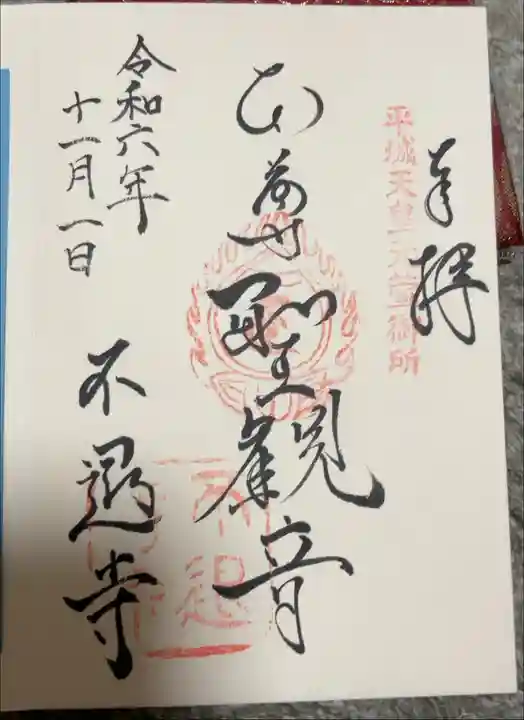 奉拝
平城天皇元萱御所
本尊聖観音
令和六年
十一月一日
不退寺
不退